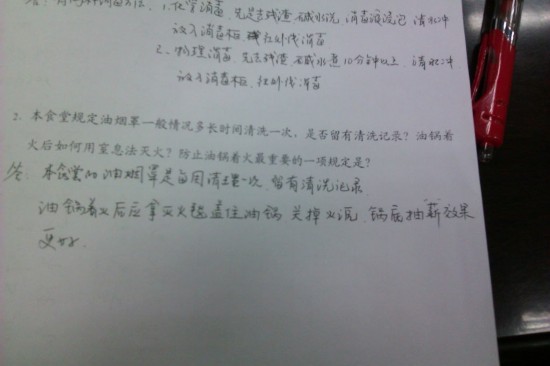 答: 有两种消毒方法: 1. 化学消毒. 先是去残渣 碱水洗 消毒液浸包 清水冲
放入消毒柜 红外线消毒
2. 物理消毒. 先去残渣 碱水煮10分钟以上 清水冲
放于消毒柜. 红外线消毒
2. 本食堂规定油烟罩一般情况多长时间清洗一次，是否留有清洗记录？油锅着
火后如何用窒息法灭火？防止油锅着火最重要的一项规定是？
答: 本食堂的油烟罩是每周清理一次. 留有清洗记录.
油锅着火后应拿灭火毯盖住油锅 关掉火源. 锅底抽"薪"效果
更好.